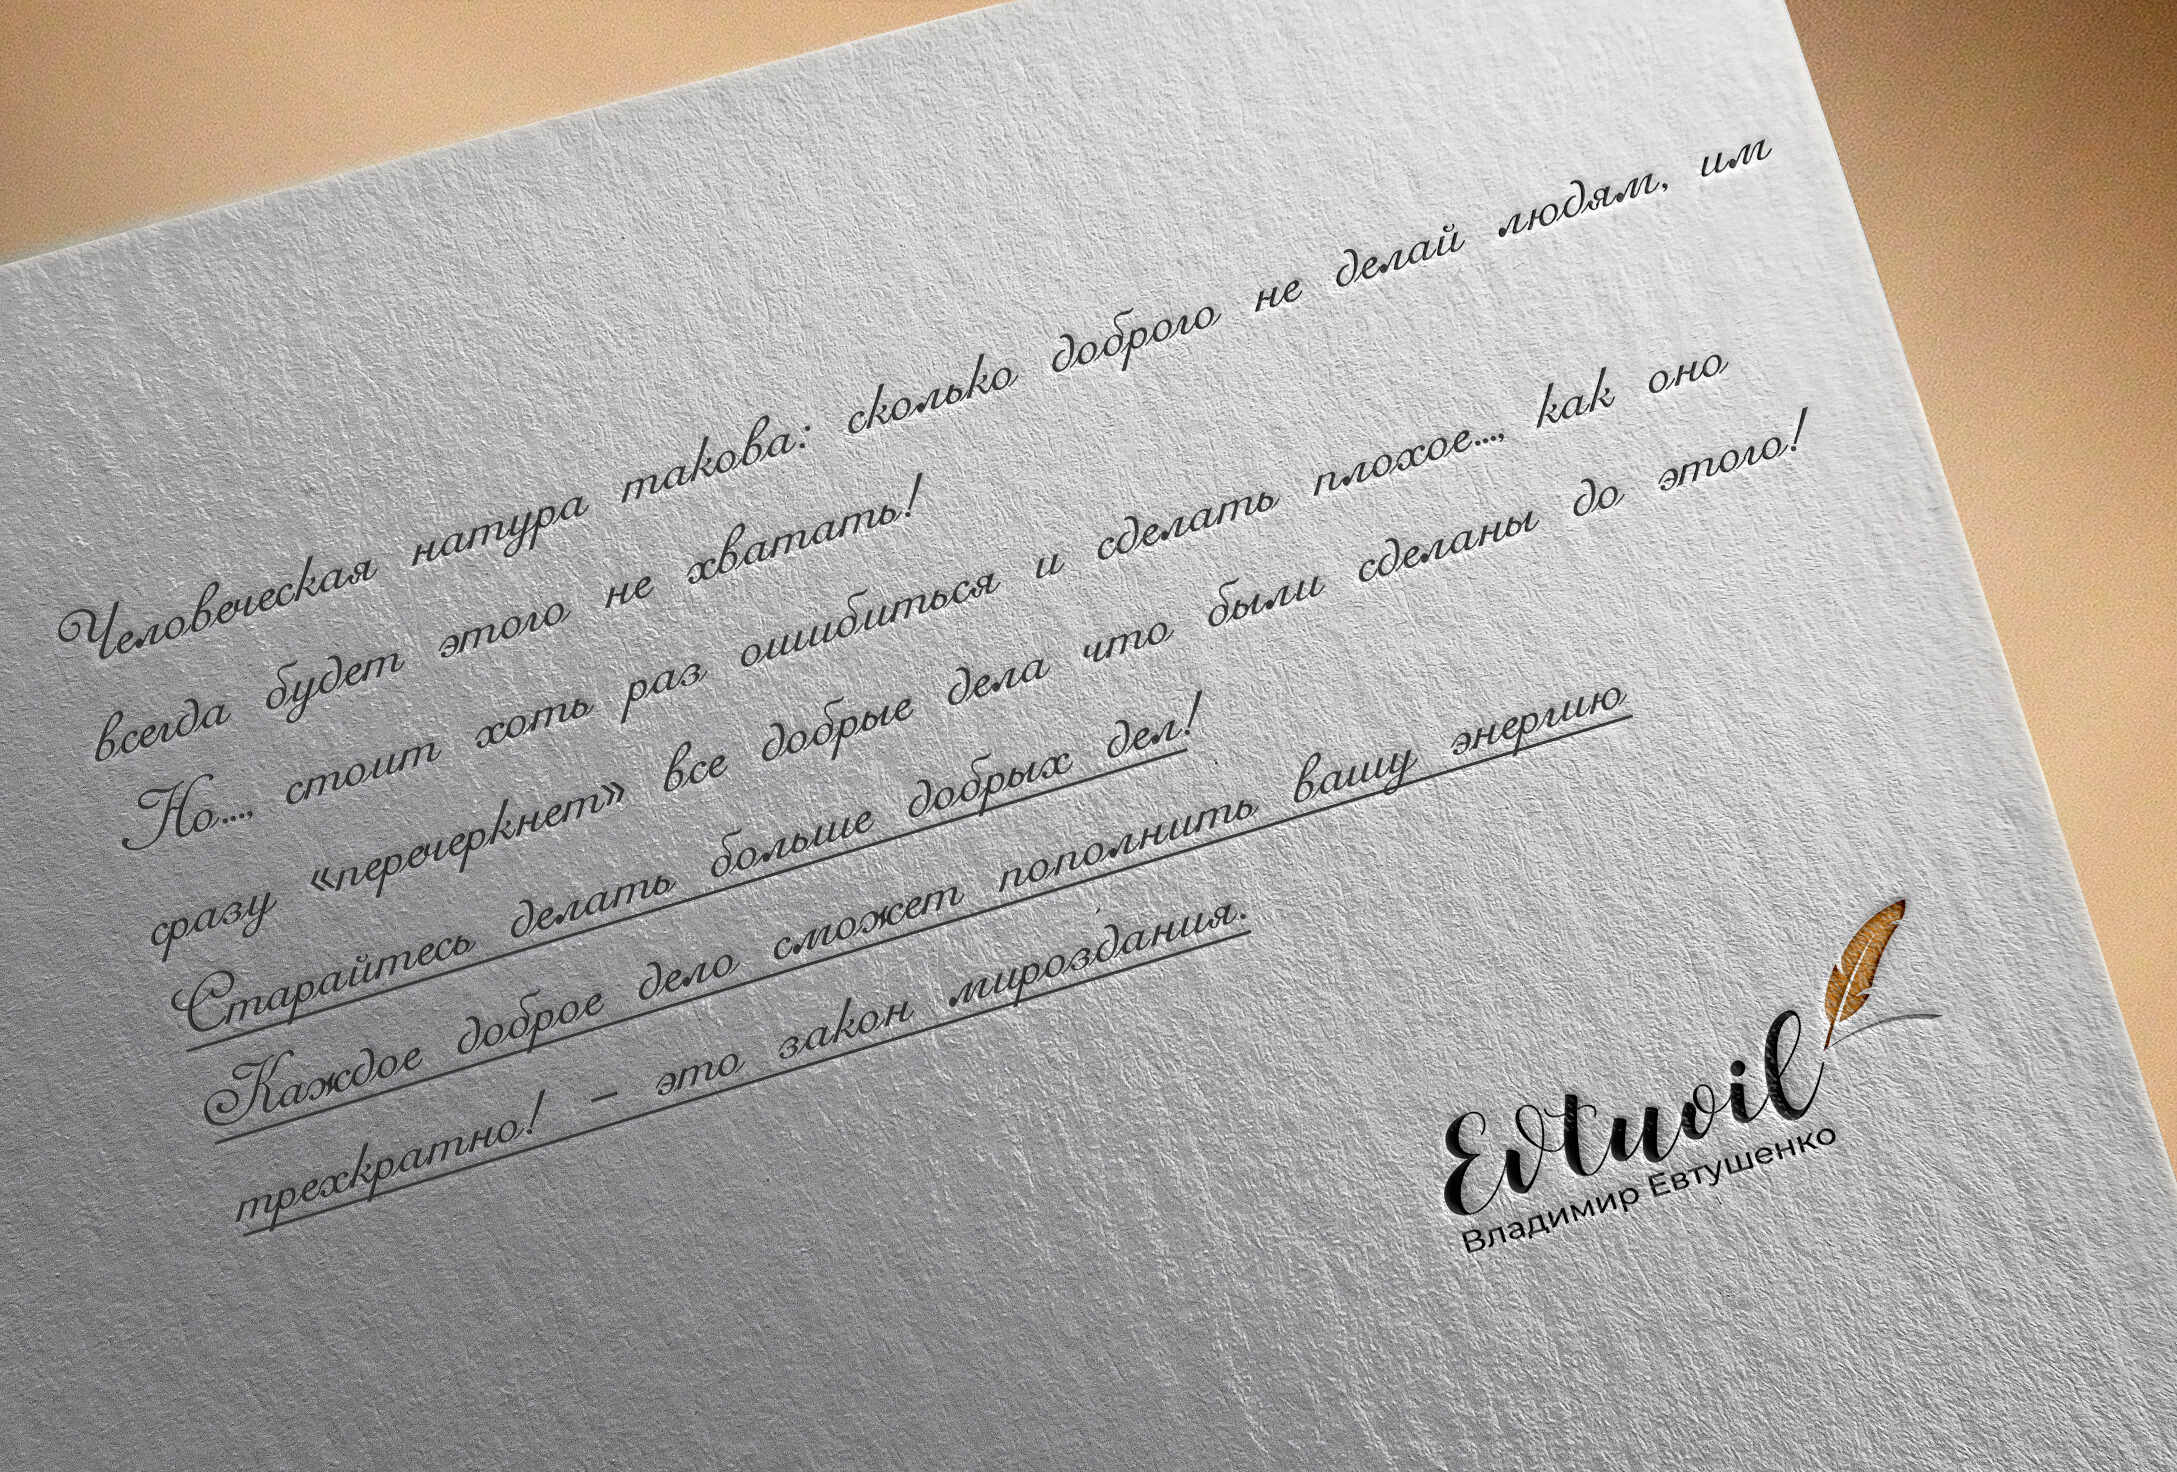 Человеческая натура такова: сколько доброго не делай людям, им
всегда будет этого не хватать!
Но..., стоит хоть раз ошибиться и сделать плохое..., как оно
сразу «перечеркнет» все добрые дела что были сделаны до этого!
Старайтесь делать больше добрых дел!
Каждое доброе дело сможет пополнить вашу энергию
трехкратно! – это закон мироздания.
Evtuoil
Владимир Евтушенко